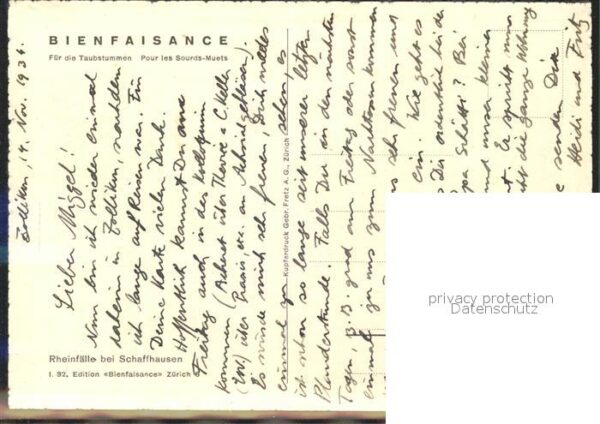 BIENFAISANCE
Für die Taubstummen Pour les Sourds-Muets
Zollikon, 14. Nov. 1934.
Lieber Müggel!
Nun bin ich wieder einmal
daheim in Zollikon, nachdem
ich lange auf Reisen war. Für
Deine Karte vielen Dank.
Hoffentlich kannst Du am
Freitag auch in das Kolloquium
kommen (Referat über Theorie
über Praxis, etc.
Es würde mich sehr freuen, Dich wieder
einmal zu sehen, es
ist schon so lange seit unserer letzten
Plauderstunde. Falls Du in den nächsten
Tagen, z.B. grad am Freitag oder sonst
einmal zu uns zum Nachtessen kommen
sehr freuen und
ein. Wie geht es
Dir ordentlich bei der
Bei
und unser kleiner
Es spricht nun
die ganze Wohnung
senden Dir
Heidi und Fritz
Kupferdruck Gebr. Fretz A. G., Zürich
Rheinfälle bei Schaffhausen
I. 92. Edition «Bienfaisance» Zürich 6
privacy protection
Datenschutz